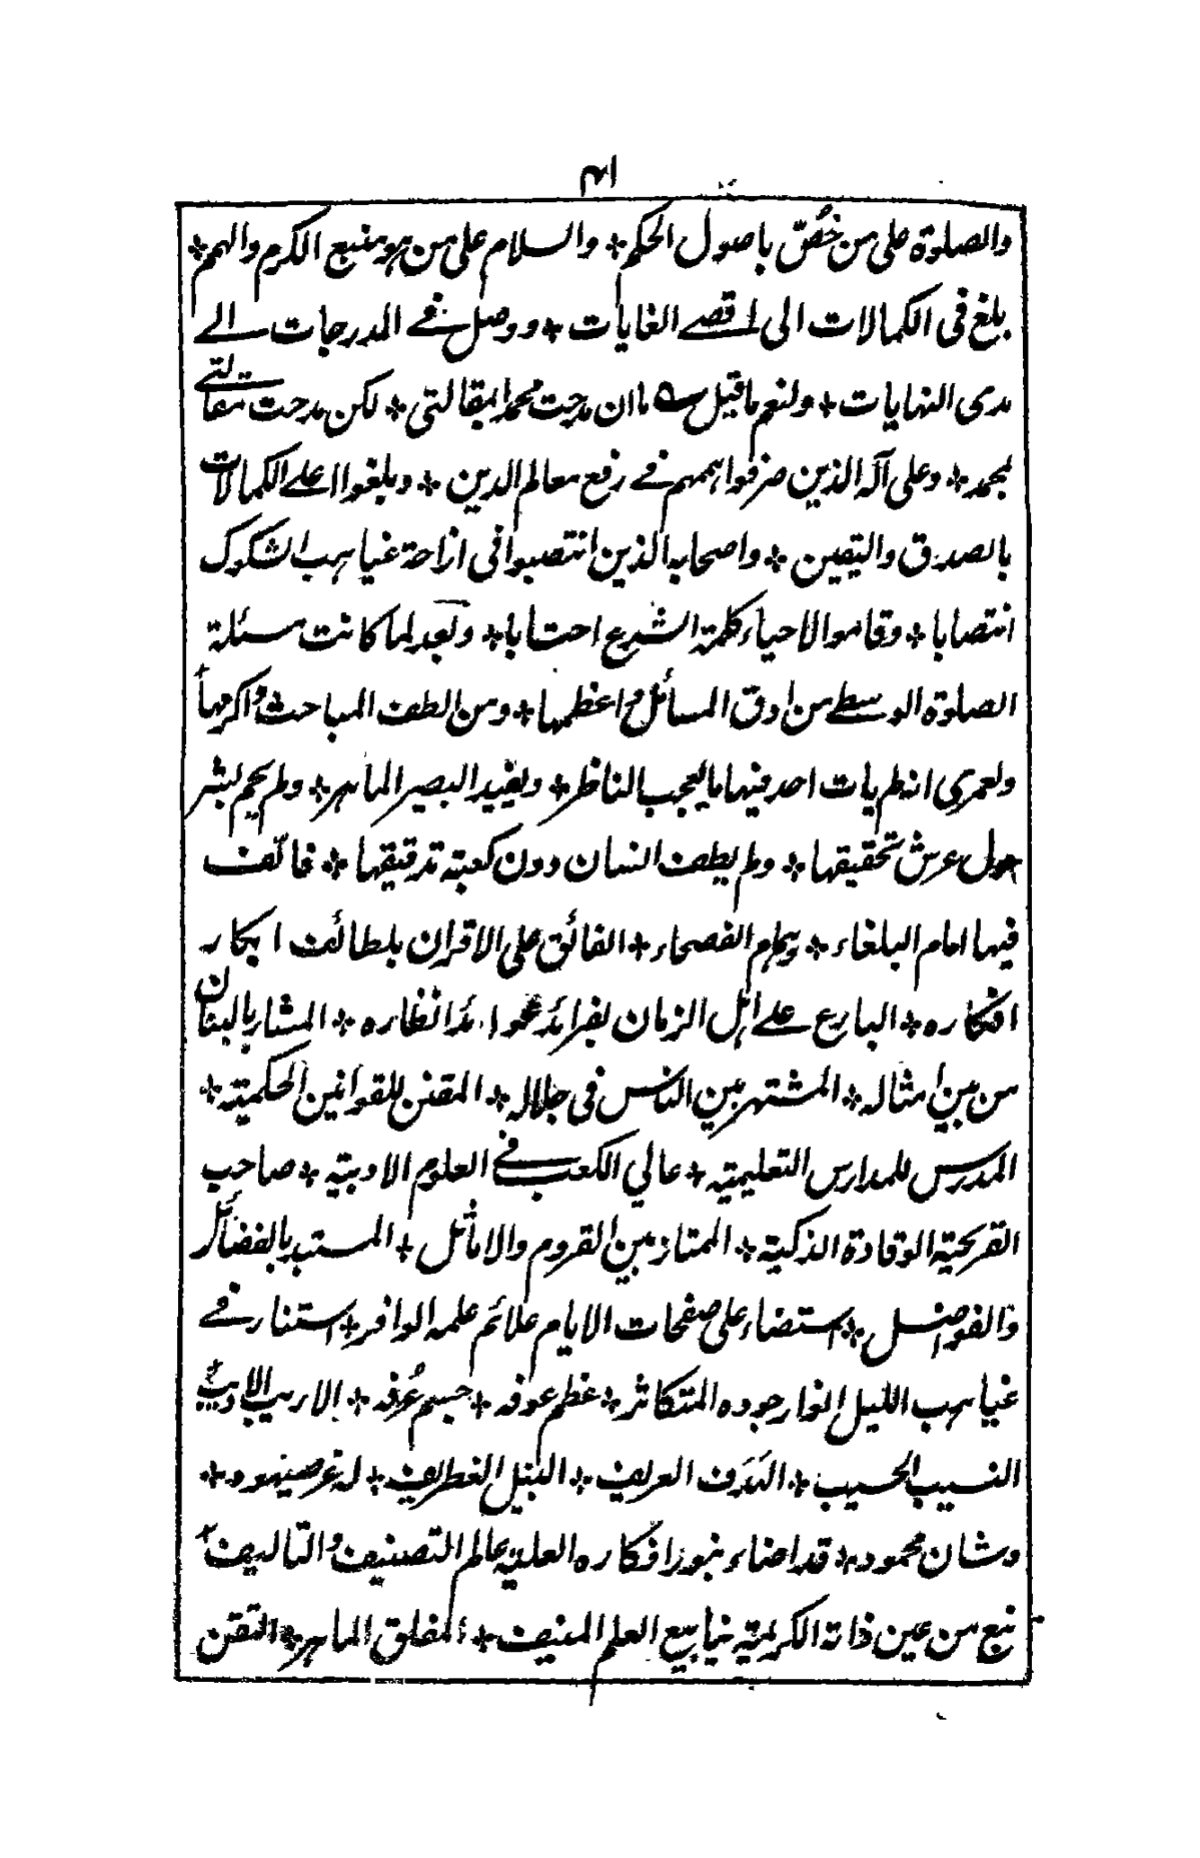 ۴۱
والصلوة على من خُصّ باصول الحكم * والسلام على من هو منبع الكرم والهمم *
بلغ فى الكمالات الى اقصے الغايات * ووصل فے المدرجات الے
مدى النهايات * ولنعم ما قيل ؎ ما ان مدحت محمدا بمقالتى * لكن مدحت مقالتے
بمحمد * وعلى آله الذين صرفوا هممهم فے رفع معالم الدين * وبلغوا اعلے الكمالات
بالصدق واليقين * واصحابه الذين انتصبوا فى ازاحة غياهب الشكوك
انتصابا * وقاموا لاحياء كلمة الشرع احتسابا * وبعد لما كانت مسئلة
الصلوة الوسطے من ادق المسائل واعظمها * ومن الطف المباحث واكرمها
ولعمرى انه لم يات احد فيها ما يعجب الناظر * ويفيد البصير الماهر * ولم يحم بشر
حول عرش تحقيقها * ولم يطف انسان دون كعبة تدقيقها * فالّف
فيها امام البلغاء * وهمام الفصحاء * الفائق على الاقران بلطائف ابكار
افكاره * البارع علے اهل الزمان بفرائد عوائد انظاره * المشار بالبنان
من بين امثاله * المشتهر بين الناس فى جلاله * المقنن للقوانين الحكمية *
المدرس للمدارس التعليمية * عالي الكعب فے العلوم الادبية * صاحب
القريحة الوقادة الذكية * الممتاز بين القروم والاماثل * المستبد بالفضائل
والفواضل * استضاء على صفحات الايام علائم علمه الوافر * استنار فے
غياهب الليل انوار جوده المتكاثر * عظم عوفه * جسم عُرفه * الاريب الاديب
النسيب الحسيب * الغطريف * له عرض
وشان محمود * قد اضاء بنور افكاره العلية عالم التصنيف والتاليف
نبع من عين ذاته الكريمة ينابيع العلم المنيف * المفلق الماهر * المتقن